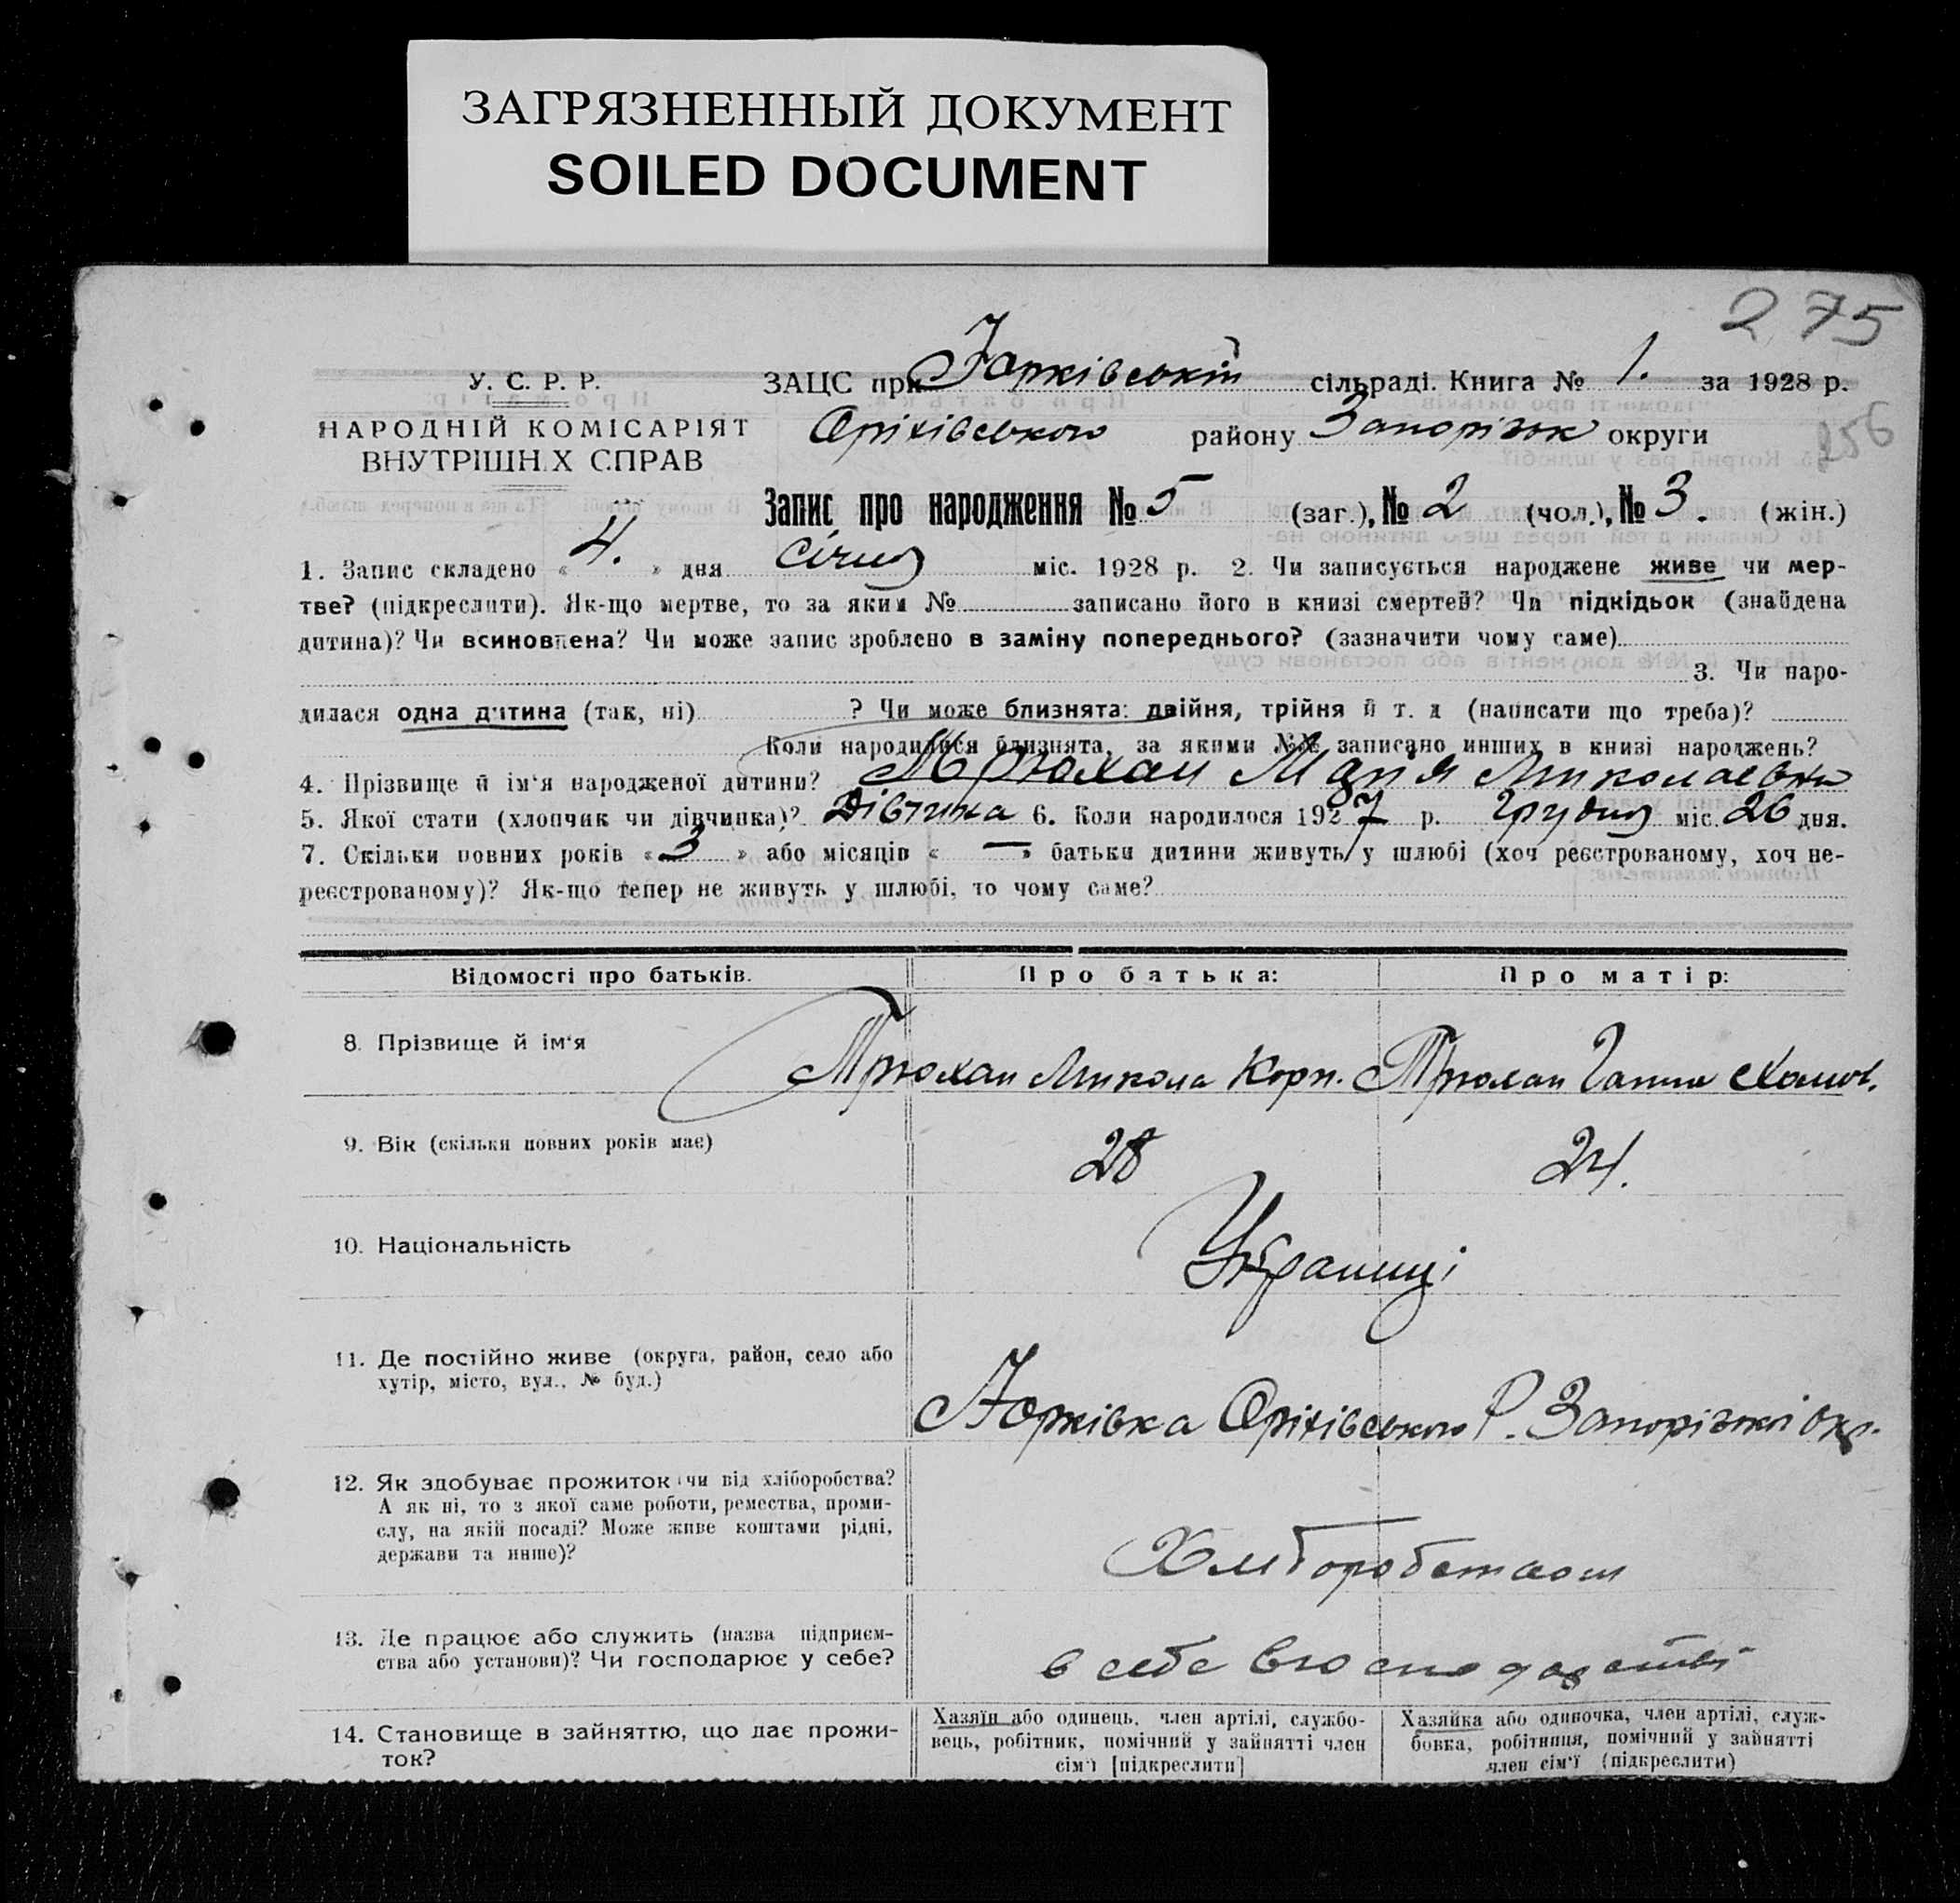 ЗАГРЯЗНЕННЫЙ ДОКУМЕНТ
SOILED DOCUMENT
275
256
У. С. Р. Р.
НАРОДНІЙ КОМІСАРІЯТ
ВНУТРІШНІХ СПРАВ
ЗАЦС при Юрківській сільраді. Книга № 1. за 1928 р.
Оріхівського району Запорізьк округи
Запис про народження № 5 (заг.), № 2 (чол.), № 3. (жін.)
1. Запис складено « 4. » дня січня міс. 1928 р. 2. Чи записується народжене живе чи мер-
тве? (підкреслити). Як-що мертве, то за яким № записано його в книзі смертей? Чи підкідьок (знайдена
дитина)? Чи всиновлена? Чи може запис зроблено в заміну попереднього? (зазначити чому саме)
3. Чи наро-
дилася одна дитина (так, ні) ? Чи може близнята: двійня, трійня й т. д (написати що треба)?
Коли народилися близнята, за якими №№ записано инших в книзі народжень?
4. Прізвище й ім'я народженої дитини? Трюхан Марія Миколаевна
5. Якої стати (хлопчик чи дівчинка)? Дівчина 6. Коли народилося 1927 р. Грудня міс. 26 дня.
7. Скільки повних років « 3 » або місяців « — » батьки дитини живуть у шлюбі (хоч реєстрованому, хоч не-
реєстрованому)? Як-що тепер не живуть у шлюбі, то чому саме?
Відомості про батьків. Про батька: Про матір:
8. Прізвище й ім'я Трюхан Микола Корн. Трюхан Ганна Хомов.
9. Вік (скільки повних років має) 28 24.
10. Національність Українці
11. Де постійно живе (округа, район, село або
хутір, місто, вул., № буд.)
Юрківка Оріхівського Р. Запорізької окр.
12. Як здобуває прожиток: чи від хліборобства?
А як ні, то з якої саме роботи, ремества, проми-
слу, на якій посаді? Може живе коштами рідні,
держави та инше)?
Хліборобством
13. Де працює або служить (назва підприєм-
ства або установи)? Чи господарює у себе?
в себе в господарстві
14. Становище в зайняттю, що дає прожи-
ток?
Хазяїн або одинець, член артілі, службо-
вець, робітник, помічний у зайнятті член
сім'ї [підкреслити]
Хазяйка або одиночка, член артілі, служ-
бовка, робітниця, помічний у зайнятті
член сім'ї (підкреслити)